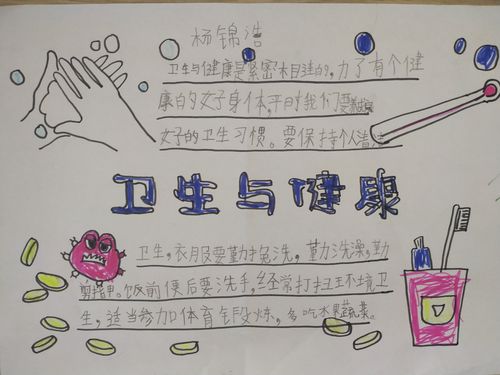 杨锦浩
卫生与健康是紧密相连的,为了有个健
康的好身体,平时我们要养成
好的卫生习惯。要保持个人清洁
卫生与健康
卫生,衣服要勤换洗,勤洗澡,勤
剪指甲。饭前便后要洗手,经常打扫环境卫
生,适当参加体育锻炼,多吃水果蔬菜。